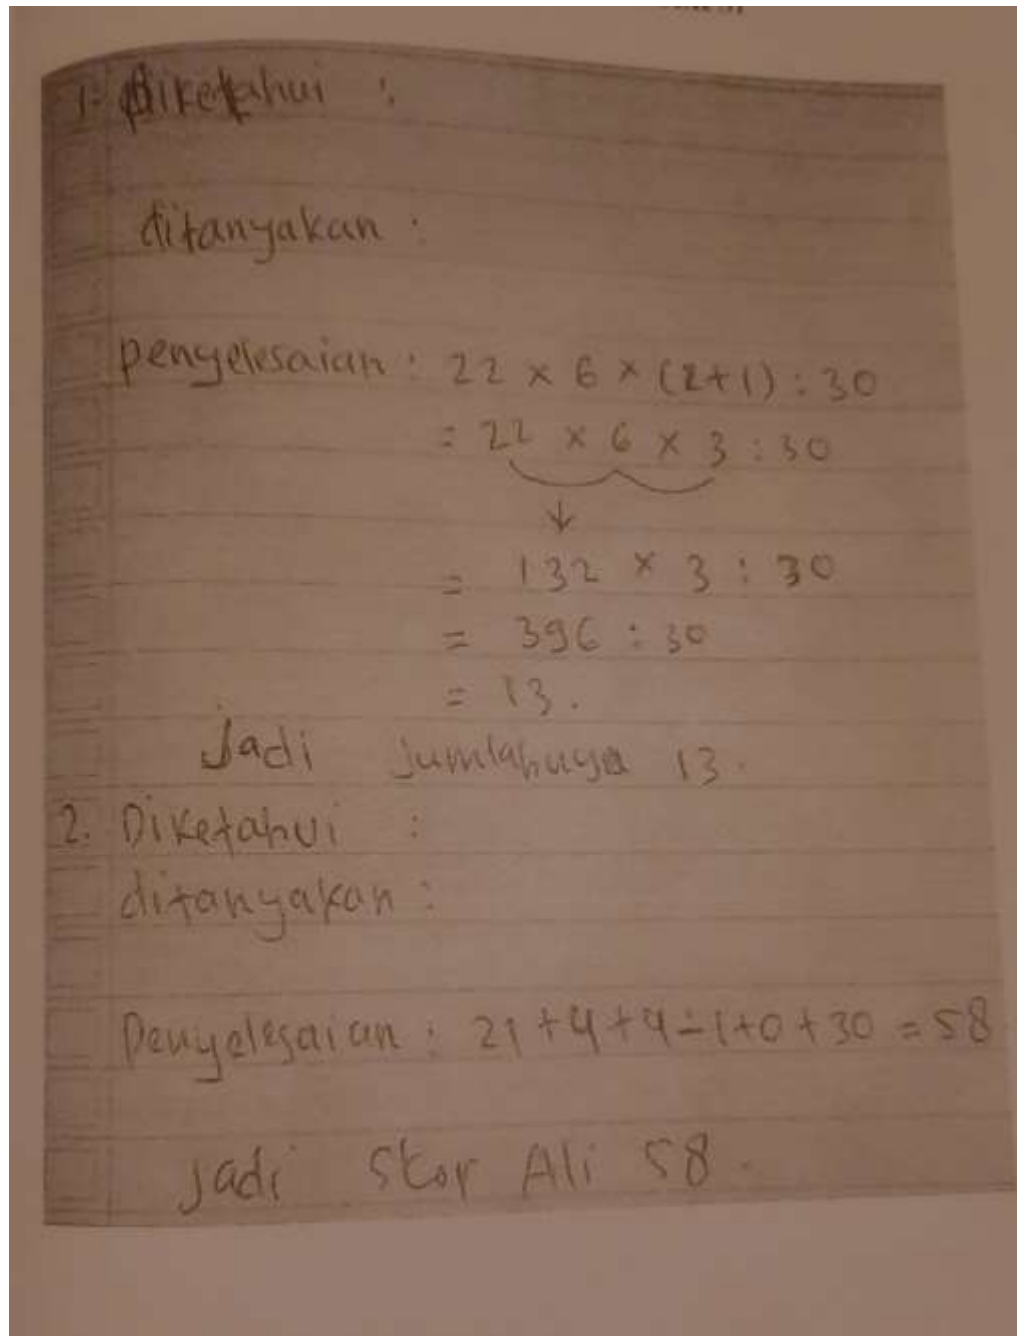 1. Diketahui :
ditanyakan :
penyelesaian : 22 × 6 × (2+1) : 30
= 22 × 6 × 3 : 30
↓
= 132 × 3 : 30
= 396 : 30
= 13.
Jadi Jumlahnya 13.
2. Diketahui :
ditanyakan :
Penyelesaian : 21 + 4 + 4 - 1 + 0 + 30 = 58
Jadi Skor Ali 58.